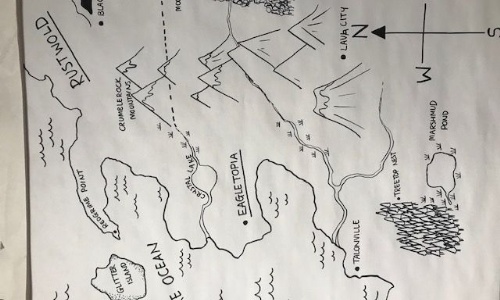 RUSTWOLD
CRUMBLEROCK
MOUNTAINS
LAVA CITY
N
S
W
MARSHMUD
POND
TREETOP NEST
CRYSTAL LAKE
EAGLETOPIA
TALONVILLE
GLITTER
ISLAND
OCEAN